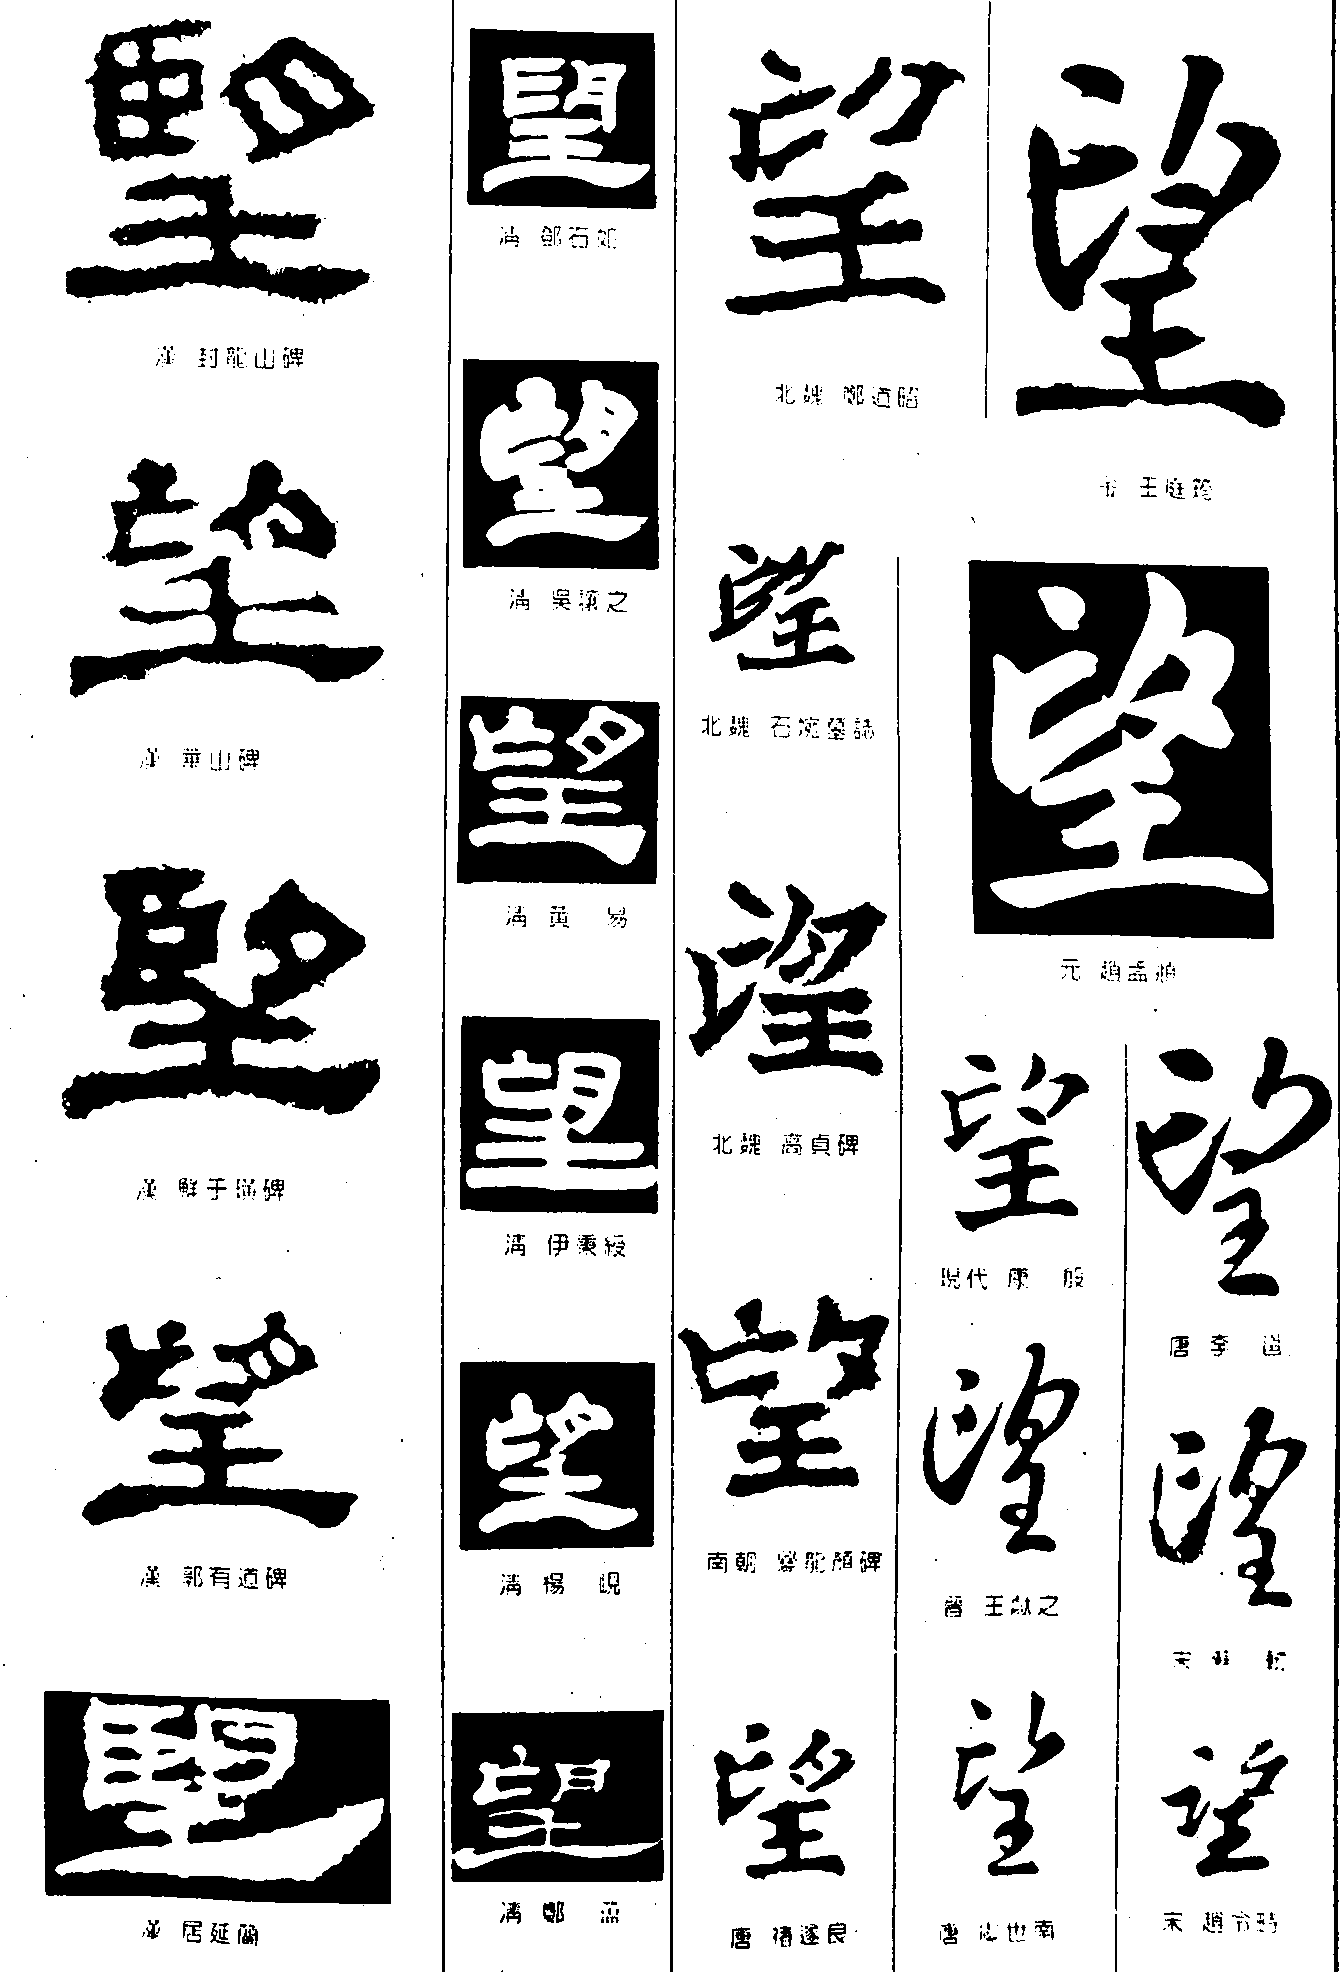 望
漢 封龍山碑
望
漢 華山碑
望
漢 鮮于璜碑
望
漢 郭有道碑
望
漢 居延簡
望
清 鄧石如
望
清 吳讓之
望
清 黃 易
望
清 伊秉綬
望
清 楊 峴
望
清 鄭 簠
望
北魏 鄭道昭
望
北魏 石婉墓誌
望
北魏 高貞碑
望
南朝 爨龍顏碑
望
唐 褚遂良
望
王庭筠
望
元 趙孟頫
望
現代 康 殷
望
晉 王獻之
望
唐 虞世南
望
唐 李 邕
望
宋 蘇 軾
望
宋 趙令時